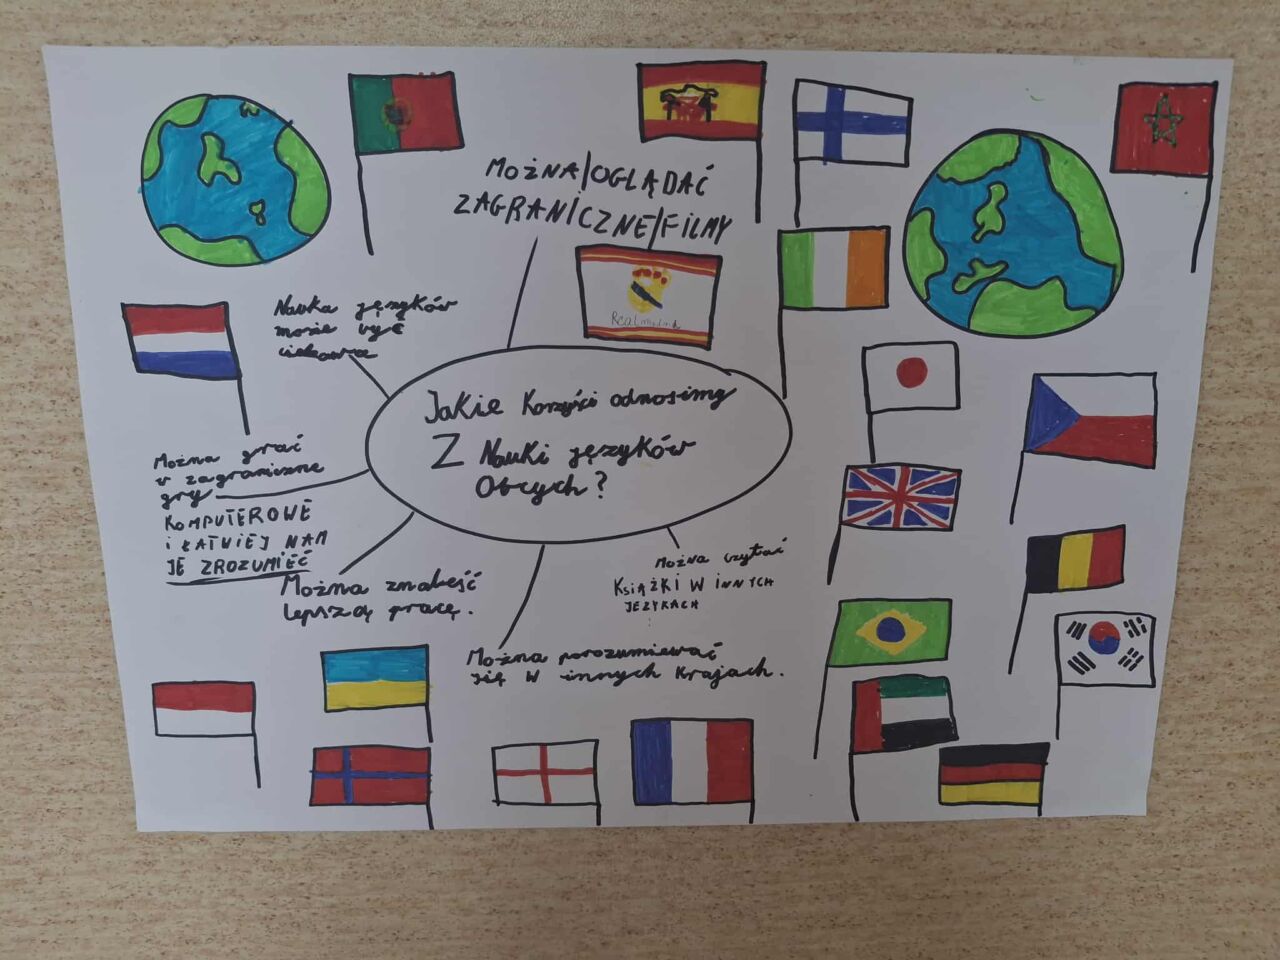 MOŻNA/OGLĄDAĆ
ZAGRANICZNE/FILMY
Nauka języków
może być
ciekawa
Jakie Korzyści odnosimy
Z Nauki języków
Obcych?
Można grać
w zagraniczne
gry
KOMPUTEROWE
i ŁATNIEJ NAM
JE ZROZUMIEĆ
Można znaleść
lepszą pracę.
Można czytać
KSIĄŻKI W iNNYCH
JEZYKACH
Można porozumiewać
się w innych krajach.